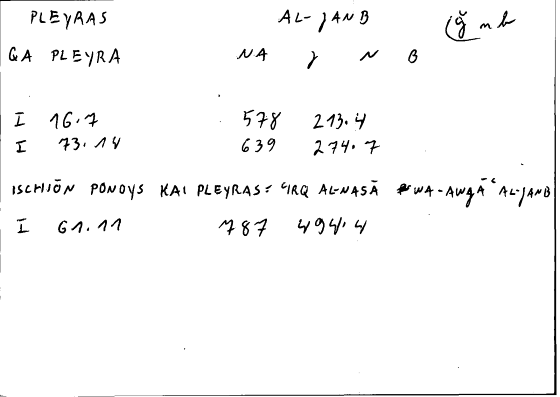 PLEYRAS AL-JANB (ǧ n b
GA PLEYRA NA J N B
I 16.7 578 213.4
I 73.14 639 274.7
ISCHIŌN PONOYS KAI PLEYRAS = ʿIRQ AL-NASĀ WA-AWGĀʿ AL-JANB
I 61.11 787 494.4